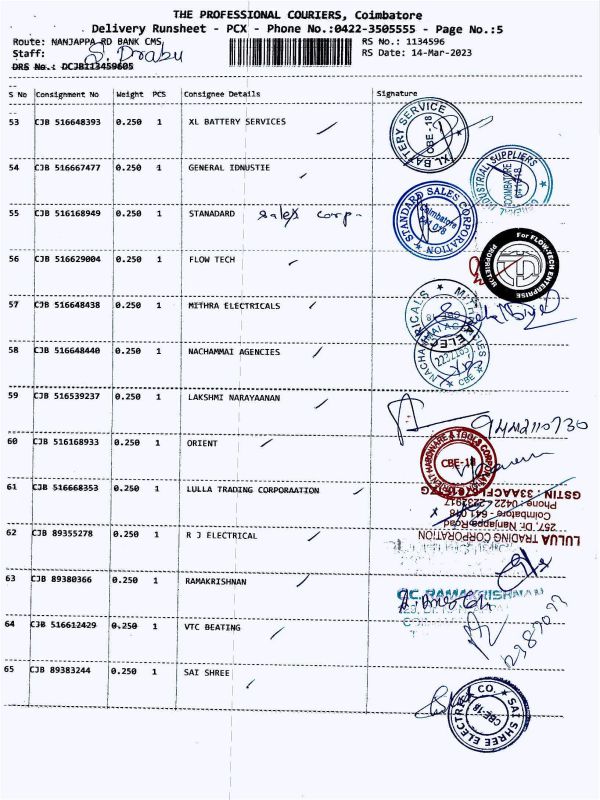 THE PROFESSIONAL COURIERS, Coimbatore
Delivery Runsheet - PCX - Phone No.:0422-3505555 - Page No.:5
Route: NANJAPPA RD BANK CMS RS No.: 1134596
Staff: S. Prabu RS Date: 14-Mar-2023
DRS No.: DCJBI13459605
S No Consignment No Weight PCS Consignee Details Signature
53 CJB 516648393 0.250 1 XL BATTERY SERVICES
XL BATTERY SERVICE CBE-18
54 CJB 516667477 0.250 1 GENERAL IDNUSTIE
INDUSTRIAL SUPPLIERS COIMBATORE 641 018
55 CJB 516168949 0.250 1 STANADARD sales corp.
STANDARD SALES CORPORATION Coimbatore
56 CJB 516629004 0.250 1 FLOW TECH
For FLOW-TECH ENTERPRISE PROPRIETRIX
57 CJB 516648438 0.250 1 MITHRA ELECTRICALS
58 CJB 516648440 0.250 1 NACHAMMAI AGENCIES
CBE
59 CJB 516539237 0.250 1 LAKSHMI NARAYAANAN
9442110730
60 CJB 516168933 0.250 1 ORIENT
ORIENT HARDWARE & TOOLS CORPORATION CBE-18
61 CJB 516668353 0.250 1 LULLA TRADING CORPORAATION
LULUA TRADING CORPORATION
257, Dr. Nanjappa Road
Coimbatore - 641 018
Phone : 0422
62 CJB 89355278 0.250 1 R J ELECTRICAL
63 CJB 89380366 0.250 1 RAMAKRISHNAN
64 CJB 516612429 0.250 1 VTC BEATING
65 CJB 89383244 0.250 1 SAI SHREE
SAI SHREE ELECTRIC CO. CBE-18